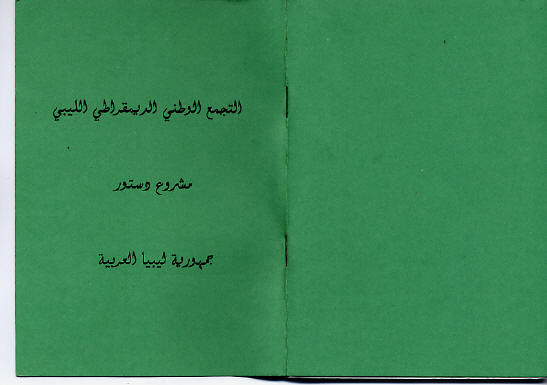 التجمع الوطني الديمقراطي الليبي
مشروع دستور
جمهورية ليبيا العربية